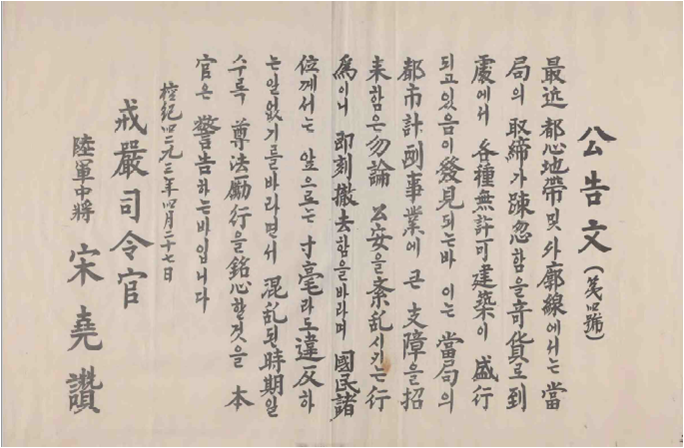 公告文(第四號)
最近 都心地帶 및 外廓線에서는 當
局의 取締가 疎忽함을 奇貨로 到
處에서 各種無許可建築이 盛行
되고있음이 發見되는바 이는 當局의
都市計劃事業에 큰 支障을 招
来함은 勿論 公安을 紊乱시키는 行
爲이니 即刻撤去함을바라며 國民諸
位께서는 앞으로는 寸毫라도 違反하
는일없기를바라면서 混乱된 時期일
수록 尊法勵行을 銘心할것을 本
官은 警告하는바입니다
檀紀四二九三年四月二十七日
戒嚴司令官
陸軍中將 宋堯讚